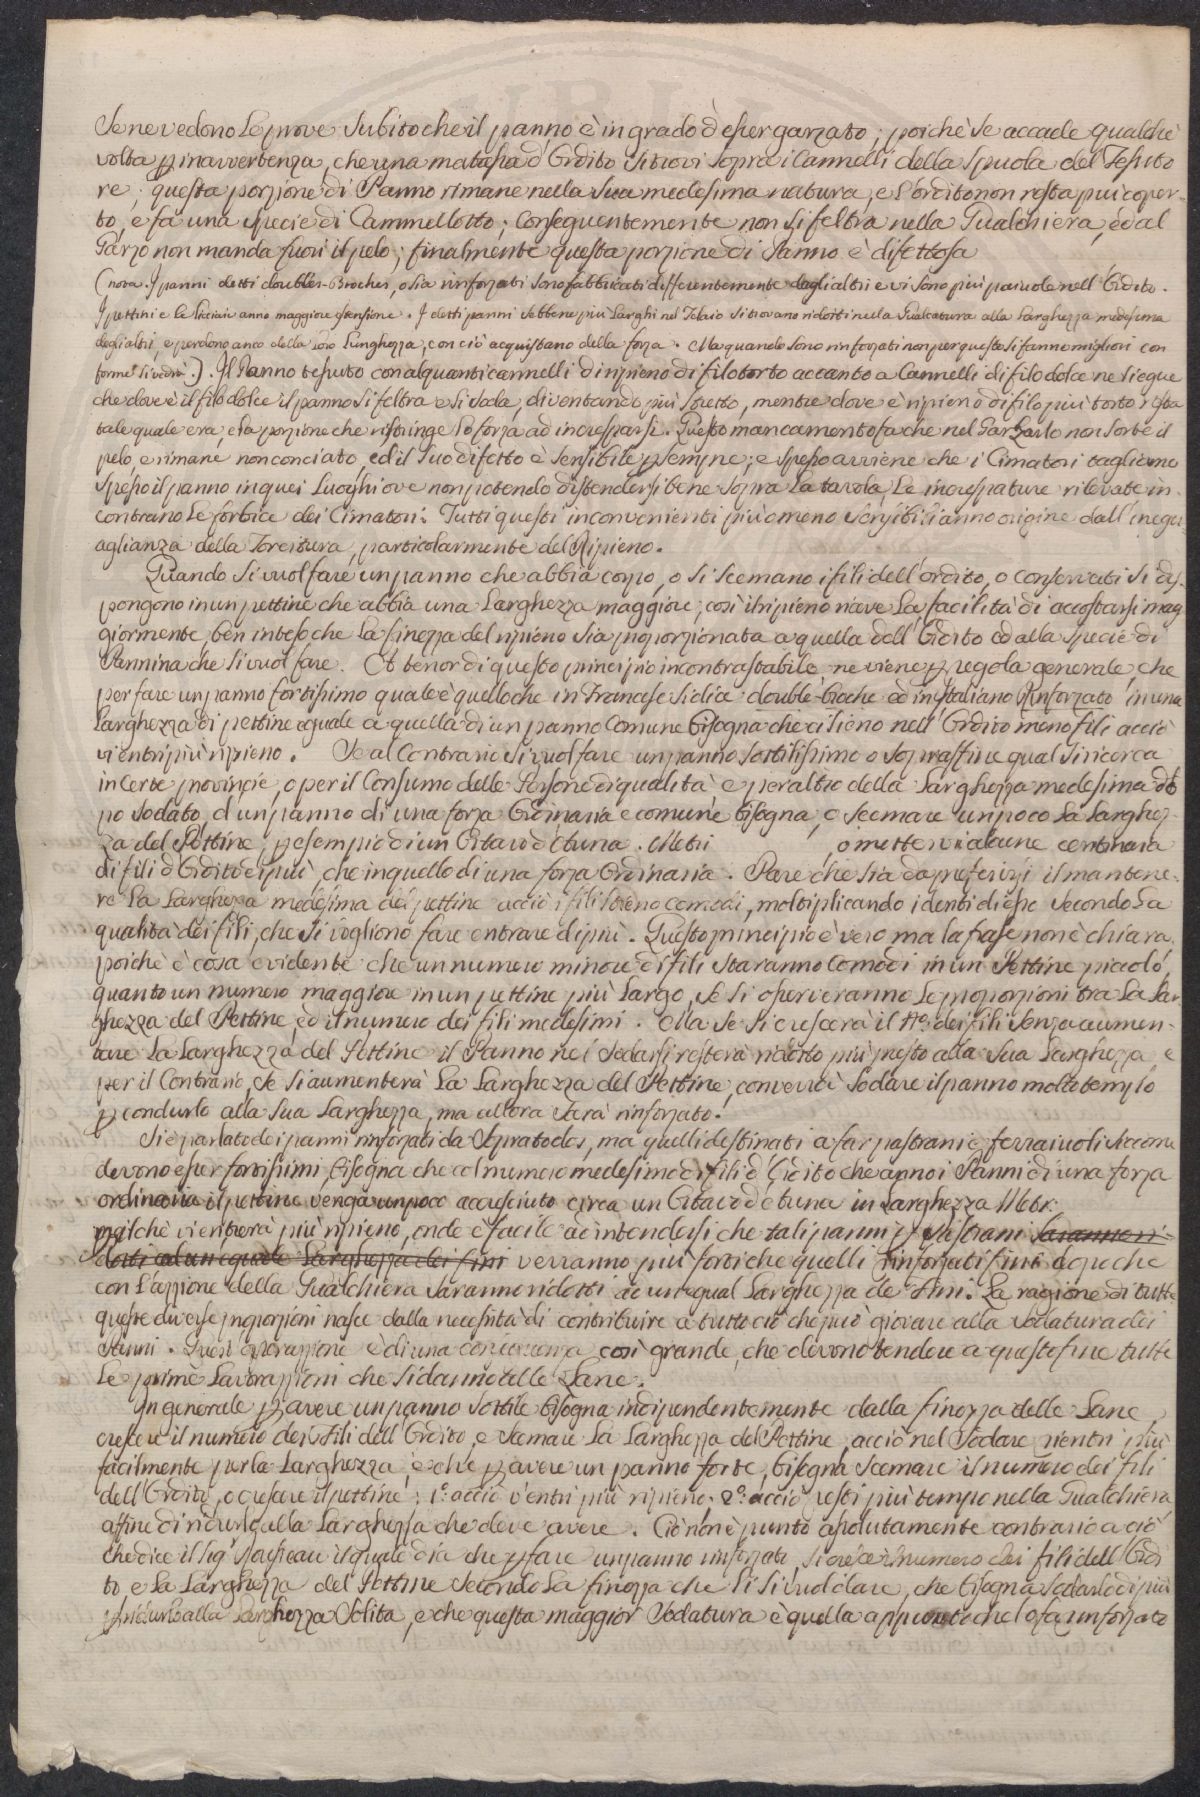 Se ne vedono le prove subito che il panno è in grado d'esser garzato; poichè se accade qualchè
volta p inavvertenza, che una matassa d'Ordito si trovi sopra i Cannelli della Spuola del Tesuto
re; questa porzione di Panno rimane nella sua medesima natura, e l'ordito non resta più coper-
to, e fa una specie di Cammellotto; conseguentemente non si feltra nella Gualchiera, ed al
Garzo non manda fuori il pelo; finalmente questa porzione di Panno è difettosa
(nota. I panni detti doublés-Broches, o sia rinforzati sono fabbricati differentemente dagli altri e vi sono più paivole nell'Ordito.
I pettini e le licciaie anno maggiore estensione. I detti panni sebbene più larghi nel Telaio si trovano ridotti nella Gualcatura alla larghezza medesima
degli altri, e perdono anco della loro lunghezza, con ciò acquistano della forza. Ma quando sono rinforzati non per questo si fanno migliori con
forme si vedrà.). Il Panno tesuto con alquanti cannelli di ripieno di filo torto accanto a Cannelli di filo dolce ne siegue
che dove è il filo dolce il panno si feltra e si soda, diventando più stretto, mentre dove è ripieno di filo più torto resta
tale quale era, e la porzione che ristringe lo forza ad increspарsi. Questo mancamento fa che nel Garzarlo non sorte il
pelo, e rimane non conciato, ed il suo difetto è sensibile p sempre; e spesso avviene che i Cimatori tagliano
spesso il panno in quei luoghi ove non potendo distendersi bene sopra la tavola le increspature rilevate in-
contrano le forbice dei Cimatori. Tutti questi inconvenienti più o meno sensibili anno origine dall'inegu-
aglianza della Torcitura, particolarmente del Ripieno.
Quando si vuol fare un panno che abbia corpo, o si scemano i fili dell'ordito, o conservati si dis-
pongono in un pettine che abbia una larghezza maggiore; così il ripieno riceve la facilità di accostarsi mag
giormente, ben inteso che la finezza del ripieno sia proporzionata a quella dell'Ordito ed alla specie di
Pannina che si vuol fare. A tenor di questo principio incontrastabile ne viene p regola generale, che
per fare un panno fortissimo quale è quello che in Francese si dice double-broche ed in Italiano Rinforzato in una
larghezza di pettine eguale a quella di un panno Comune bisogna che ci sieno nell'Ordito meno fili acciò
vi entri più ripieno. Se al Contrario si vuol fare un panno sottilissimo o sopraffine qual si ricerca
in Certe provincie, o per il Consumo delle Persone di qualità, e peraltro della larghezza medesima do
po sodato, d'un panno di una forza Ordinaria e comune bisogna, o scemare un poco la larghez-
za del Pettine; p esempio di un Ottavo d'Otuna. Metri o mettervi alcune centinara
di fili d'Ordito di più, che in quello di una forza Ordinaria. Pare che sia da preferirsi il mantene-
re la larghezza medesima del pettine acciò i fili stieno comodi, moltiplicando i denti di esso secondo la
qualità dei fili, che si vogliono fare entrare di più. Questo principio è vero ma la frase non è chiara,
poichè è cosa evidente che un numero minore di fili staranno comodi in un Pettine piccolo,
quanto un numero maggiore in un pettine più largo, se si osserveranno le proporzioni tra la lar
ghezza del Pettine, ed il numero dei fili medesimi. Ma se si crescerà il N.º dei fili senza aumen-
tare la larghezza del Pettine il Panno nel sodarsi resterà ridotto più presto alla sua larghezza, e
per il Contrario, se si aumenterà la larghezza del Pettine, converrà sodare il panno molto tempo
p condurlo alla sua larghezza, ma allora sarà rinforzato.
Si è parlato dei panni rinforzati da Sopratodos, ma quelli destinati a far pastrani e ferraiuoli siccome
devono esser fortissimi, bisogna che col numero medesimo di fili d'Ordito che anno i Panni di una forza
ordinaria il pettine venga un poco accresciuto circa un Ottavo d'Otuna in larghezza Metri.
poichè vi entrerà più ripieno, onde è facile ad intendersi che tali panni p Pastrani saranno ri-
dotti ad un eguale larghezza dei fini verranno più forti che quelli rinforzati fini dopo che
con l'azzione della Gualchiera saranno ridotti ad un egual larghezza de' Fini. La ragione di tutte
queste diverse proporzioni nasce dalla necessità di contribuire a tutto ciò che può giovare alla sodatura dei
Panni. Quest'operazione è di una conseguenza così grande, che devono tendere a questo fine tutte
le prime lavorazzioni che si danno alle Lane.
In generale p avere un panno sottile bisogna indipendentemente dalla finezza delle Lane,
crescere il numero dei fili dell'Ordito, e scemare la larghezza del Pettine, acciò nel sodare rientri più
facilmente per la larghezza, e che p avere un panno forte, bisogna scemare il numero dei fili
dell'Ordito, o crescere il pettine; 1.º acciò v'entri più ripieno, 2.º acciò resti più tempo nella Gualchiera
affine di ridurlo alla larghezza che deve avere. Ciò non è punto assolutamente contrario a ciò
che dice il Sig.r Rousseau il quale dice che p fare un panno rinforzato, si cresce il numero dei fili dell'Ordi
to, e la larghezza del Pettine secondo la finezza che li si vuol dare, che bisogna sodarlo di più
p ridurlo alla larghezza solita, e che questa maggior sodatura è quella appunto che lo fa rinforzato